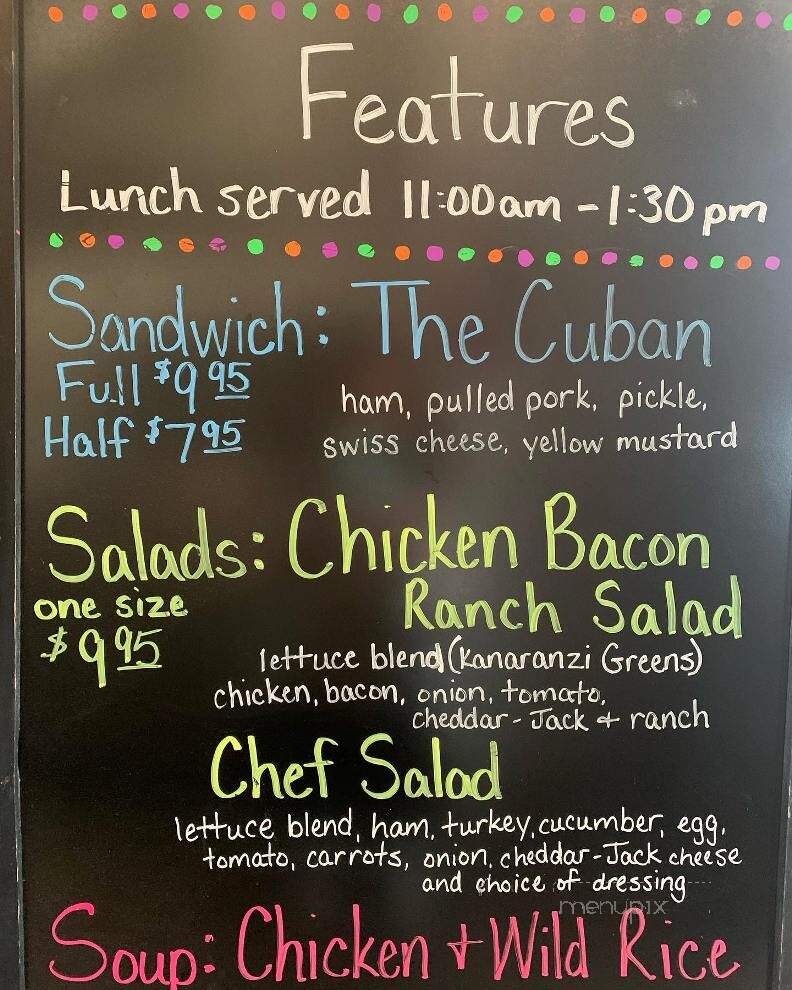 Features
Lunch served 11:00am - 1:30pm
Sandwich: The Cuban
Full $9 95
Half $7 95
ham, pulled pork, pickle,
swiss cheese, yellow mustard
Salads: Chicken Bacon
Ranch Salad
one size
$9 95
lettuce blend (Kanaranzi Greens)
chicken, bacon, onion, tomato,
cheddar-Jack + ranch
Chef Salad
lettuce blend, ham, turkey, cucumber, egg,
tomato, carrots, onion, cheddar-Jack cheese
and choice of dressing
menupix
Soup: Chicken + Wild Rice